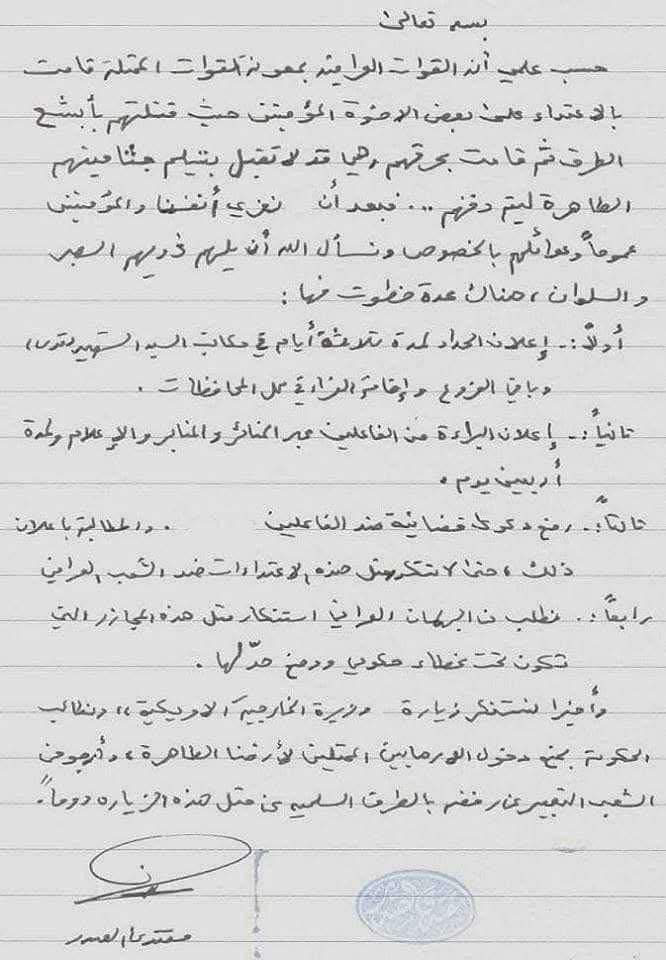 بسمه تعالى
حسب علمي أن القوات العراقية بمعونة القوات المحتلة قامت
بالاعتداء على بعض الاخوة المؤمنين حيث قتلتهم بأبشع
الطرق ثم قامت بحرقهم وهي قد لا تقبل بتسليم جثامينهم
الطاهرة ليتم دفنهم ... فبعد أن نعزي أنفسنا والمؤمنين
عموماً وعوائلهم بالخصوص ونسأل الله أن يلهم ذويهم الصبر
والسلوان ، هناك عدة خطوت منها :
أولاً :. إعلان الحداد لمدة ثلاثة أيام في مكاتب السيد الشهيد
وباقي الفروع وإقامة العزاء في كل المحافظات .
ثانياً :. إعلان البراءة من الفاعلين عبر المنائر والمنابر والإعلام ولمدة
أربعين يوم .
ثالثاً :. رفع دعوى قضائية ضد الفاعلين . والمطالبة باعلان
ذلك ، حتى لا تتكرر مثل هذه الاعتداءات ضد الشعب العراقي
رابعاً :. نطلب من البرلمان العراقي استنكار مثل هذه المجازر التي
تكون تحت غطاء حكومي ووضع حدّ لها .
وأخيرا نستنكر زيارة وزيرة الخارجية الامريكية ،، ونطالب
الحكومة بمنع دخول الارهابيين المحتلين لأرضنا الطاهرة ، وأرجو من
الشعب التعبير عن رفضه بالطرق السلمية عن مثل هذه الزياره دوماً .
مقتدى الصدر